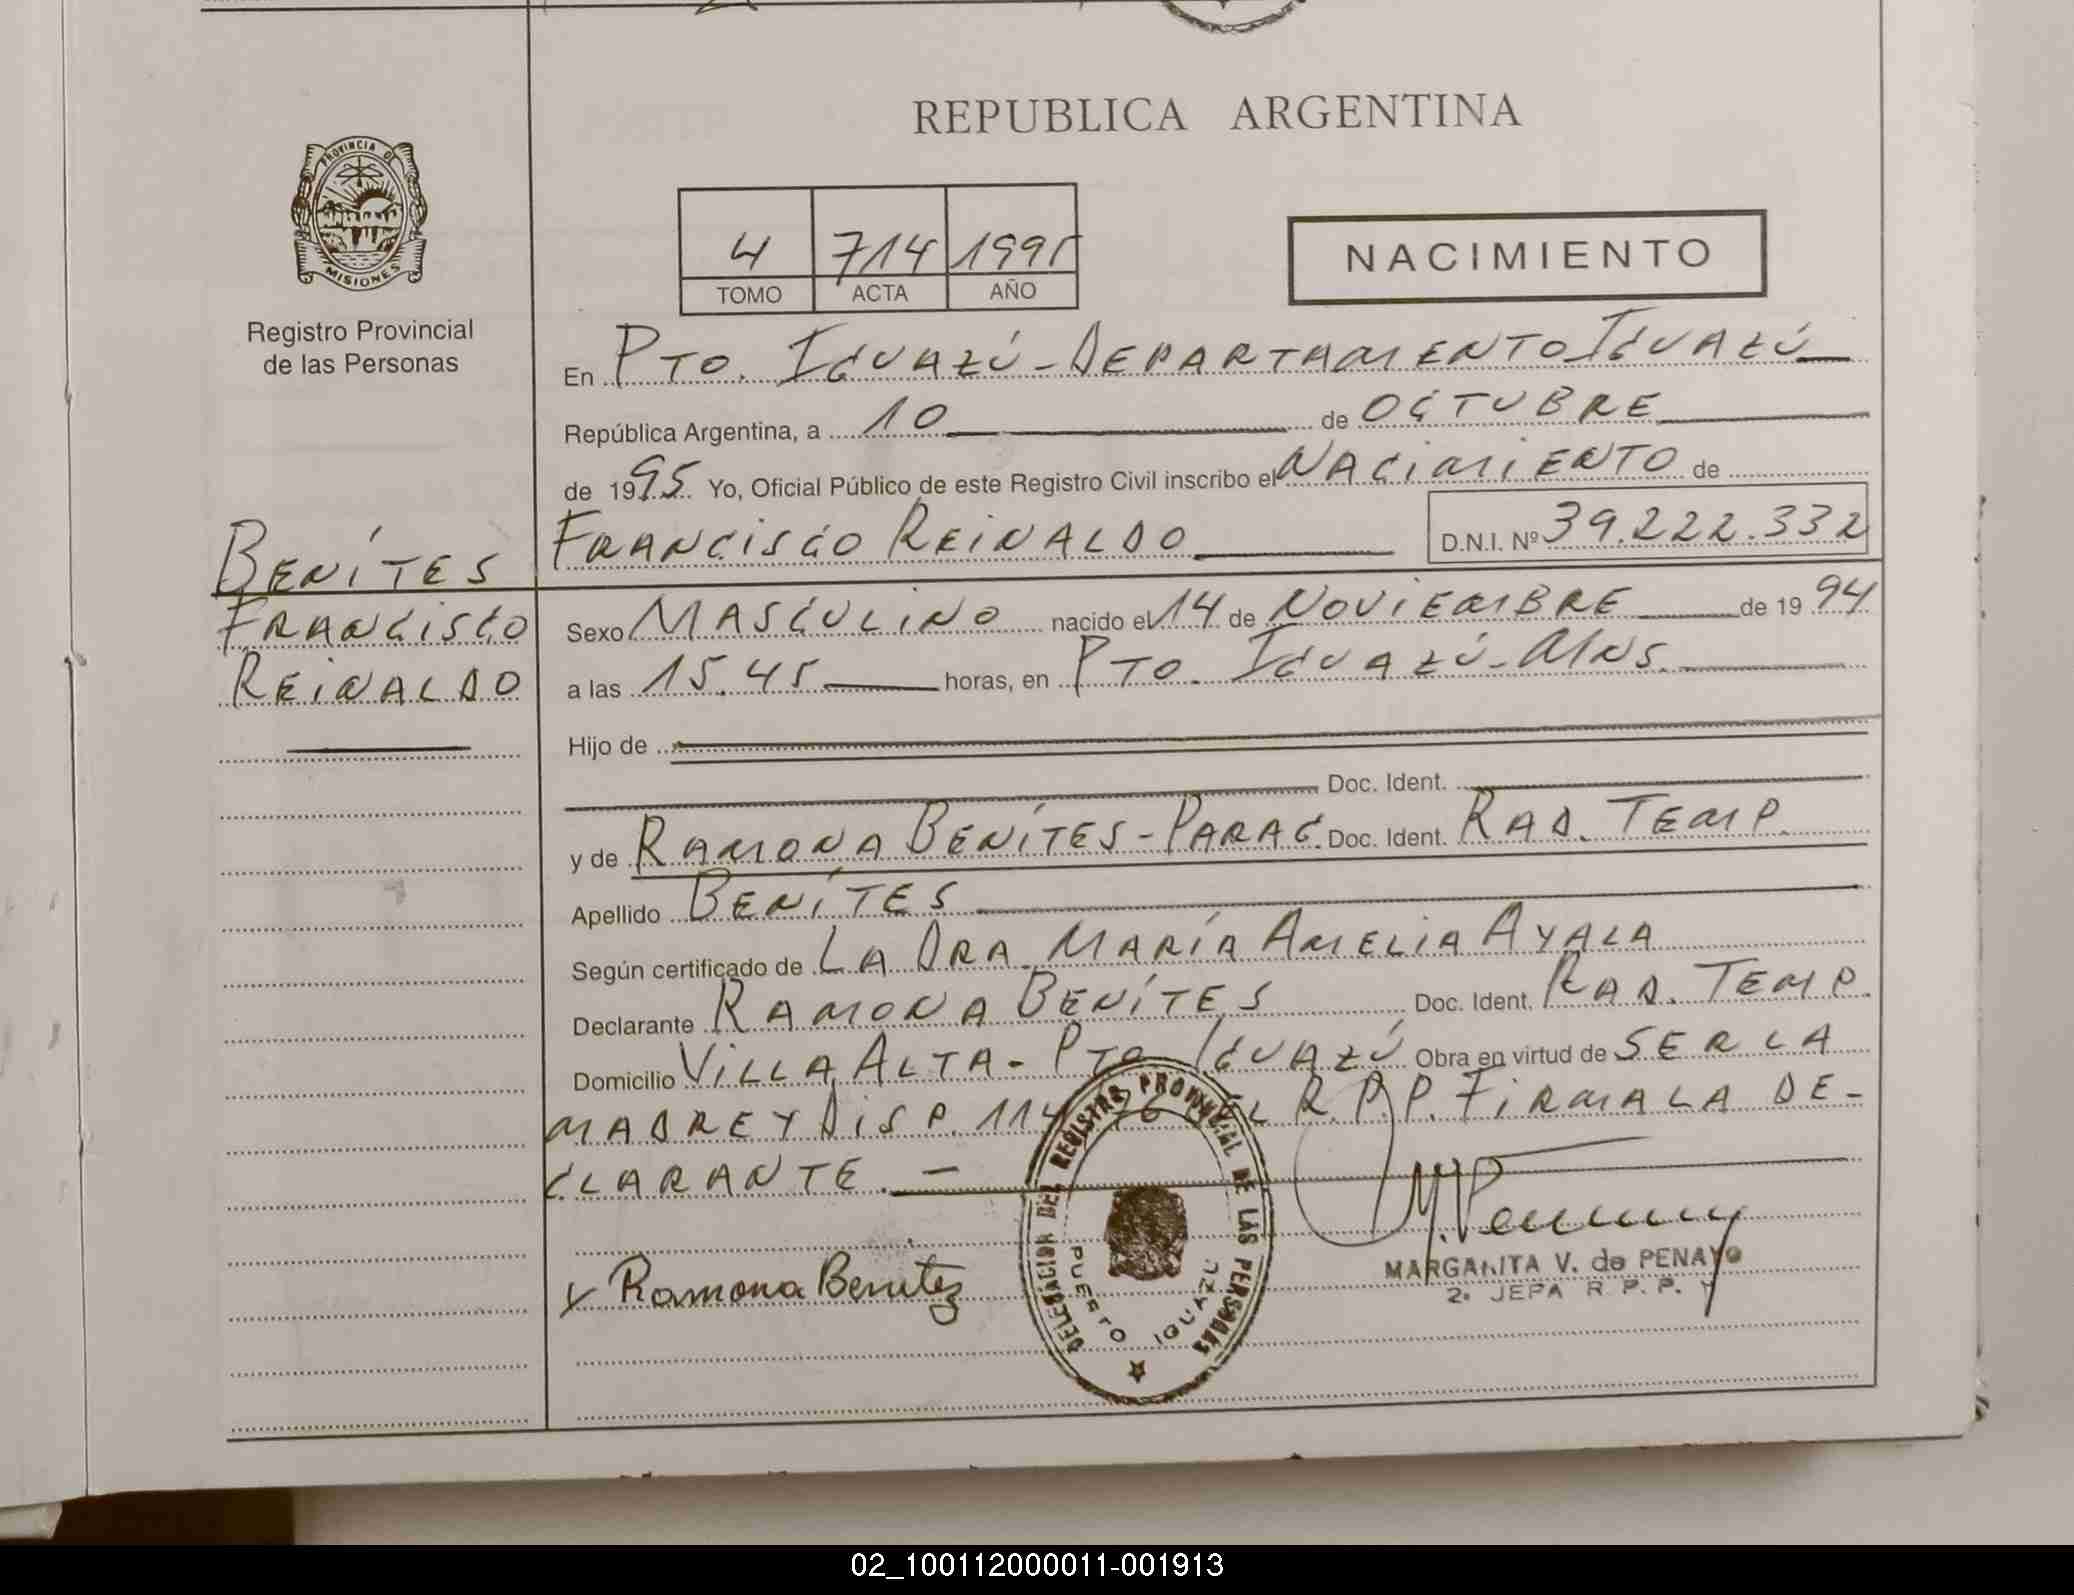 REPUBLICA ARGENTINA
PROVINCIA DE
MISIONES
Registro Provincial
de las Personas
4 714 1995
TOMO ACTA AÑO
NACIMIENTO
En PTO. IGUAZÚ - DEPARTAMENTO IGUAZÚ
República Argentina, a 10 de OCTUBRE
de 1995 Yo, Oficial Público de este Registro Civil inscribo el NACIMIENTO de
FRANCISCO REINALDO D.N.I. Nº 39.222.332
BENÍTES
FRANCISCO
REINALDO
Sexo MASCULINO nacido el 14 de NOVIEMBRE de 19 94
a las 15.45 horas, en PTO. IGUAZÚ - MNS.
Hijo de
Doc. Ident.
y de RAMONA BENÍTES - PARAG. Doc. Ident. RAD. TEMP.
Apellido BENÍTES
Según certificado de LA DRA. MARÍA AMELIA AYALA
Declarante RAMONA BENÍTES Doc. Ident. RAD. TEMP.
Domicilio VILLA ALTA - PTO IGUAZÚ Obra en virtud de SER LA
MADRE Y DISP. 114 R.P.P. FIRMA LA DE-
CLARANTE. -
x Ramona Benitez
DELEGACION DEL REGISTRO PROVINCIAL DE LAS PERSONAS
PUERTO IGUAZU
MARGARITA V. de PENAYO
2º JEFA R. P. P.
02_100112000011-001913